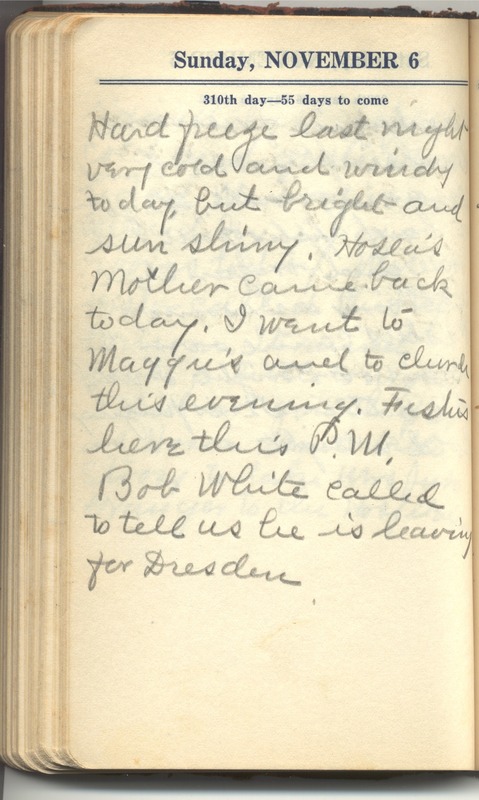 Sunday, NOVEMBER 6
310th day—55 days to come
Hard freeze last night
very cold and windy
today, but bright and
sun shiny. Hosea's
Mother came back
today. I went to
Maggie's and to church
this evening. Festus
here this P.M.
Bob White called
to tell us he is leaving
for Dresden